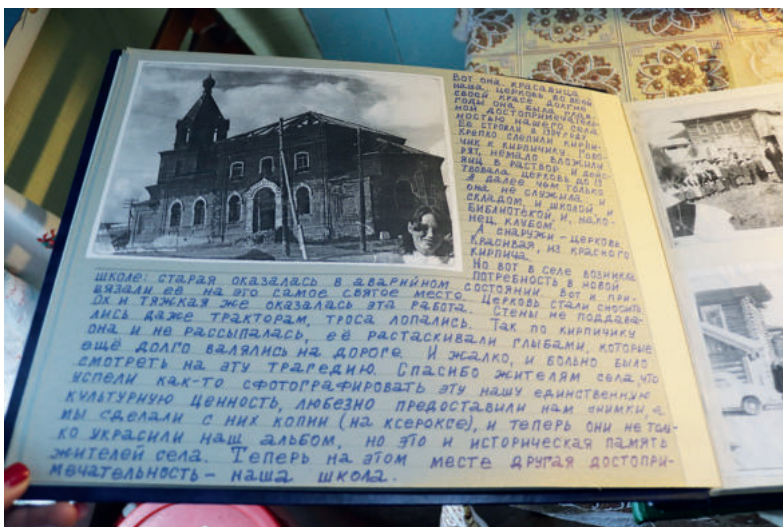 Вот она, красавица
наша, церковь во всей
своей красе. Долгие
годы она была глав-
ной достопримечатель-
ностью нашего села.
Её строили в годах.
Крепко слепили кирпи-
чик к кирпичику. Гово-
рят, немало вложили
яиц в раствор. И дейс-
твовала церковь до
А далее чем только
она не служила, и
складом, и школой, и
библиотекой и, на ко-
нец, клубом.
А снаружи - церковь,
красивая, из красного
кирпича.
Но вот в селе возникла
потребность в новой
школе: старая оказалась в аварийном состоянии. Вот и при-
вязали её на это самое святое место. Церковь стали сносить.
Ох и тяжкая же оказалась эта работа. Стены не поддава-
лись даже тракторам, троса лопались. Так по кирпичику
она и не рассыпалась, её растаскивали глыбами, которые
ещё долго валялись на дороге. И жалко, и больно было
смотреть на эту трагедию. Спасибо жителям села, что
успели как-то сфотографировать эту нашу единственную
культурную ценность, любезно предоставили нам снимки, а
мы сделали с них копии (на ксероксе), и теперь они не толь-
ко украсили наш альбом, но это и историческая память
жителей села. Теперь на этом месте другая достопри-
мечательность - наша школа.